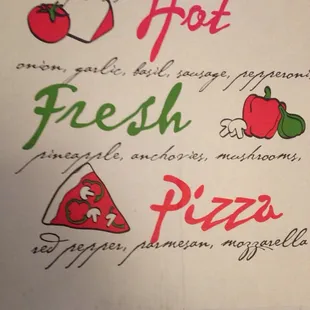 Hot
onion, garlic, basil, sausage, pepperoni,
Fresh
pineapple, anchovies, mushrooms,
Pizza
red pepper, parmesan, mozzarella